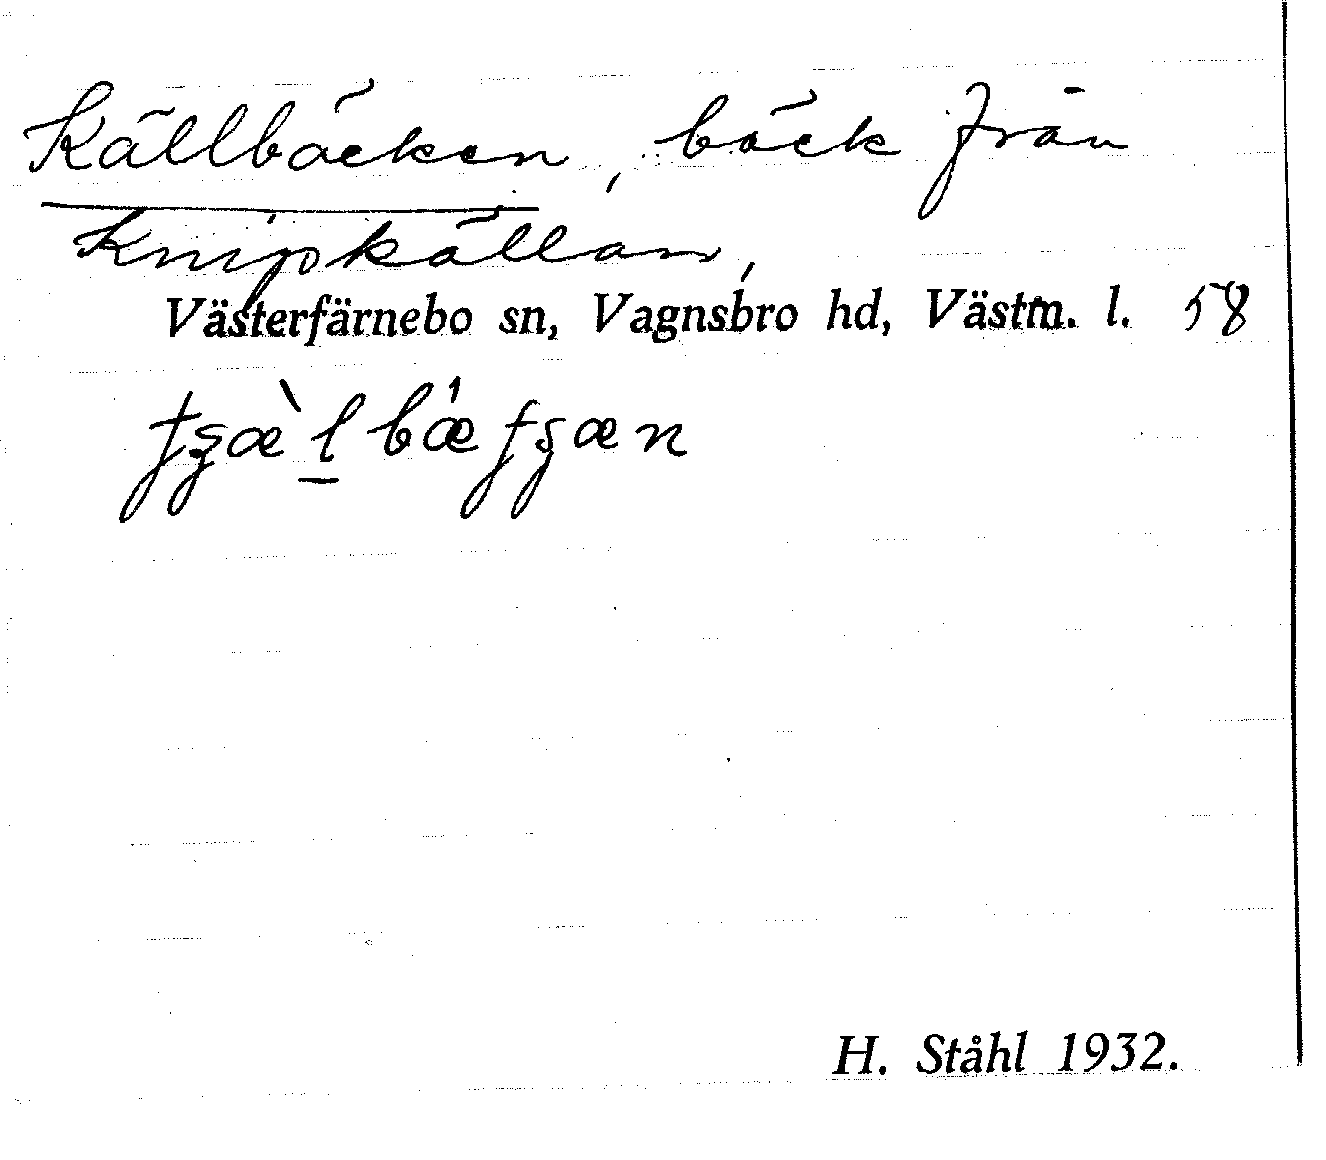 Källbäcken, bäck från
Knipkällan,
Västerfärnebo sn, Vagnsbro hd, Västm. l. 58
H. Ståhl 1932.